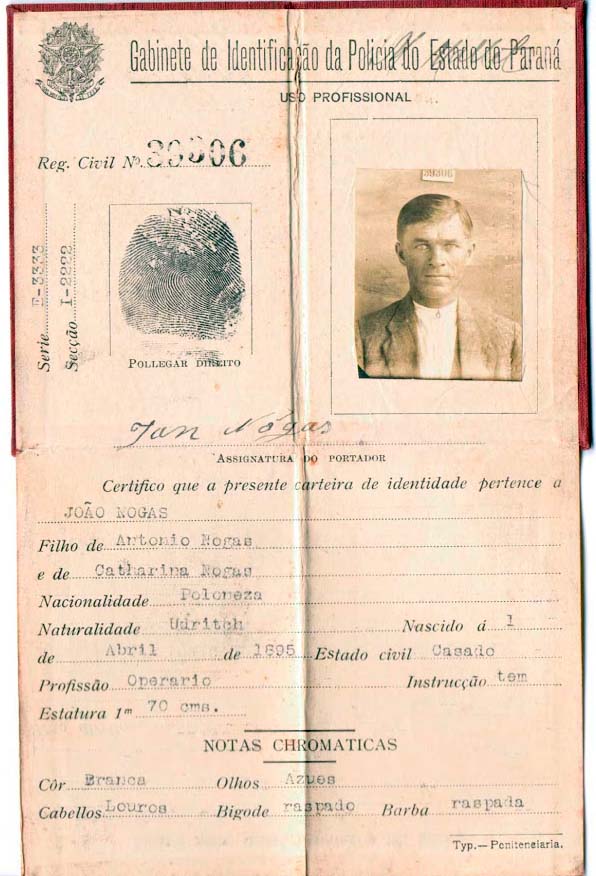 Gabinete de Identificação da Policia do Estado do Paraná
USO PROFISSIONAL
Reg. Civil Nº 39306
39306
Serie E-3333
Secção I-2222
POLLEGAR DIREITO
Jan Nogas
ASSIGNATURA DO PORTADOR
Certifico que a presente carteira de identidade pertence a
JOÃO NOGAS
Filho de Antonio Nogas
e de Catharina Nogas
Nacionalidade Poloneza
Naturalidade Udritch Nascido á 1
de Abril de 1895 Estado civil Casado
Profissão Operario Instrucção tem
Estatura 1m 70 cms.
NOTAS CHROMATICAS
Côr Branca Olhos Azues
Cabellos Louros Bigode raspado Barba raspada
Typ.—Penitenciaria.